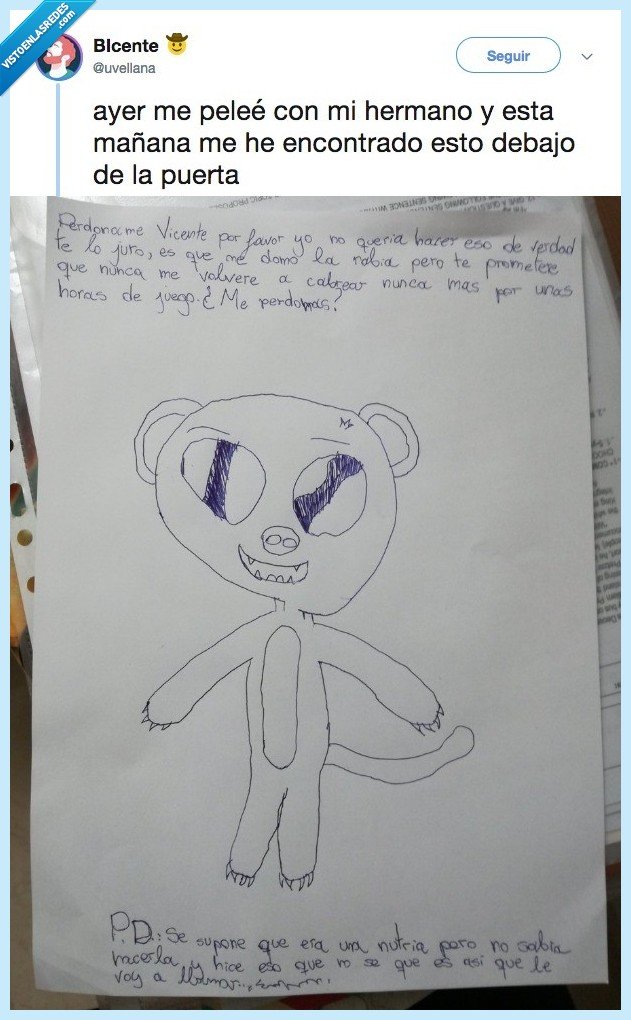 VISTOENLASREDES
.com
BIcente 🤠
@uvellana
Seguir
ayer me peleé con mi hermano y esta
mañana me he encontrado esto debajo
de la puerta
Perdoname Vicente por favor yo no queria hacer eso de verdad
te lo juro, es que me domo la rabia pero te prometere
que nunca me volvere a cabrear nunca mas por unas
horas de juego. ¿Me perdonas?
P.D.: Se supone que era una nutria pero no sabia
hacerla, y hice eso que no se que es asi que le
voy a llamar...